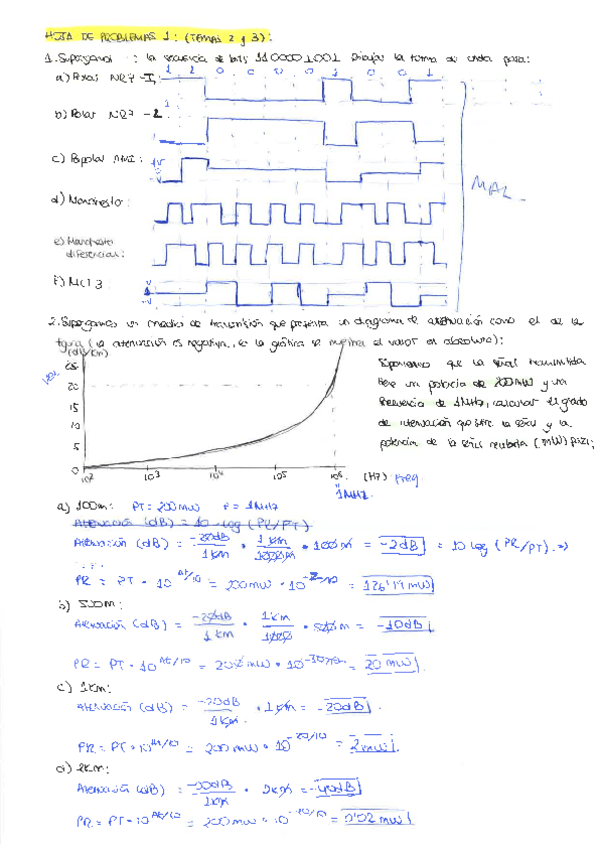 HOJA DE PROBLEMAS 1: (TEMAS 2 y 3):
1. Supongamos : la secuencia de bits 110000 1001 Dibujar la forma de onda para:
a) Polar NRZ-I:
b) Polar NRZ-L
c) Bipolar AMI:
d) Manchester:
e) Manchester
diferencial:
f) MLT3
MAL
2. Supongamos un medio de transmisión que presenta un diagrama de atenuación como el de la
figura (la atenuación es negativa, en la gráfica se muestra el valor en absoluto):
(dB/Km)
25
20
15
10
5
0
10² 10³ 10⁴ 10⁵ 10⁶ (Hz) Freq
1MHz
Suponiendo que la señal transmitida
tiene una potencia de 200mW y una
frecuencia de 1MHz, calcular el grado
de atenuación que sufre la señal y la
potencia de la señal recibida (mW) para:
a) 100m: PT = 200mW F = 1MHz
Atenuación (dB) = 10 · log (PR/PT)
Atenuación (dB) = -20dB/1Km · 1Km/1000m · 100m = -2dB = 10 log (PR/PT) =>
PR = PT · 10^At/10 = 200mW · 10^-2/10 = 126'19 mW
b) 500m:
Atenuación (dB) = -20dB/1Km · 1Km/1000 · 500m = -10dB
PR = PT · 10^At/10 = 200mW · 10^-10/10 = 20mW
c) 1Km:
Atenuación (dB) = -20dB/1Km · 1Km = -20dB
PR = PT · 10^At/10 = 200mW · 10^-20/10 = 2mW
d) 2Km:
Atenuación (dB) = -20dB/1Km · 2Km = -40dB
PR = PT · 10^At/10 = 200mW · 10^-40/10 = 0'02mW